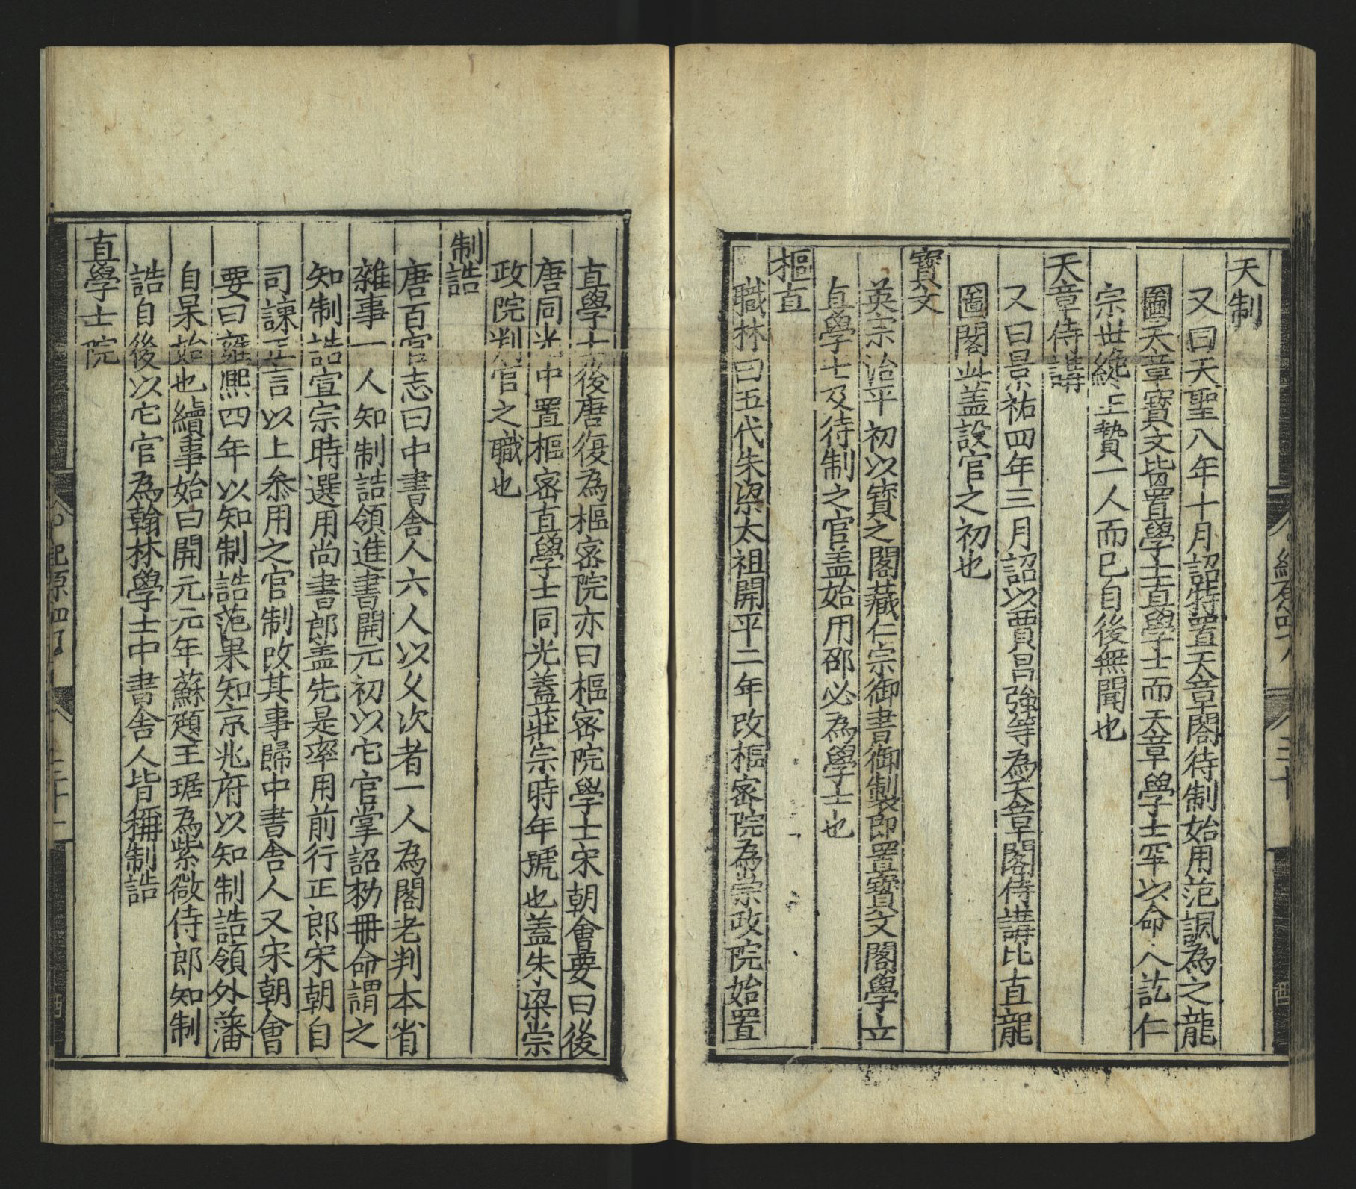 天制
又曰天聖八年十月詔特置天章閣待制始用范諷為之龍
圖天章寶文皆置學士直學士而天章學士罕以命人訖仁
宗世纔王贄一人而已自後無聞也
天章侍講
又曰景祐四年三月詔以賈昌強等為天章閣侍講比直龍
圖閣此蓋設官之初也
寶文
英宗治平初以寶之閣藏仁宗御書御製即置寶文閣學立
直學士及待制之官盖始用邵必為學士也
樞直
職林曰五代朱梁太祖開平二年改樞密院為崇政院始置
直學士後唐復為樞密院亦曰樞密院學士宋朝會要曰後
唐同光中置樞密直學士同光蓋莊宗時年號也蓋朱梁崇
政院判官之職也
制誥
唐百官志曰中書舍人六人以久次者一人為閣老判本省
雜事一人知制誥領進書開元初以它官掌詔勑冊命謂之
知制誥宣宗時選用尚書郎盖先是率用前行正郎宋朝自
司諫正言以上叅用之官制改其事歸中書舍人又宋朝會
要曰雍熈四年以知制誥范杲知京兆府以知制誥領外藩
自杲始也續事始曰開元元年蘇頲王琚為紫微侍郎知制
誥自後以它官為翰林學士中書舍人皆稱制誥
直學士院
三十